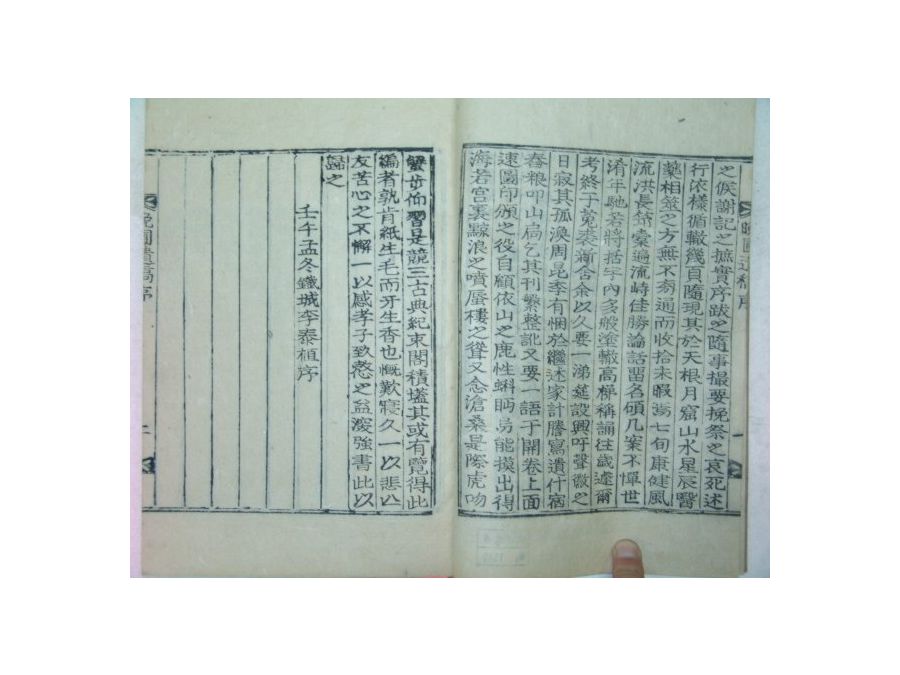 之候謝記之摭實序跋之隨事撮要挽祭之哀死述
行依樣循轍幾頁隨現其於天根月窟山水星辰醫
藥相筮之方無不旁通而收拾未暇焉七旬康健風
流洪長笻彙遍流峙佳勝論話留名碩几案不憚世
淆年馳若將括宇內多般塗轍高標稱誦往歲遽爾
考終子寬裳渐舍余以久要一遞筵設興吁聲微之
日寂其孤渙周昆季有悃於繼述家計謄寫遺什宿
舂粮叩山扃乞其刊繁整訛又要一語于開卷上面
速圖印頒之役自顧依山之鹿性蝌蚪易能摸出得
海若宮裏驚浪之噴蜃樓之聳又念滄桑是際虎吻
蟹步而習是競三古典紀東閣積壒其或有覽得此
編者孰肯紙生毛而牙生香也慨歎寢久一以悲亡
友苦心之不懈一以感孝子致慤之益深強書此以
歸之
壬午孟冬鐵城李泰植序
晩圃遺稿序